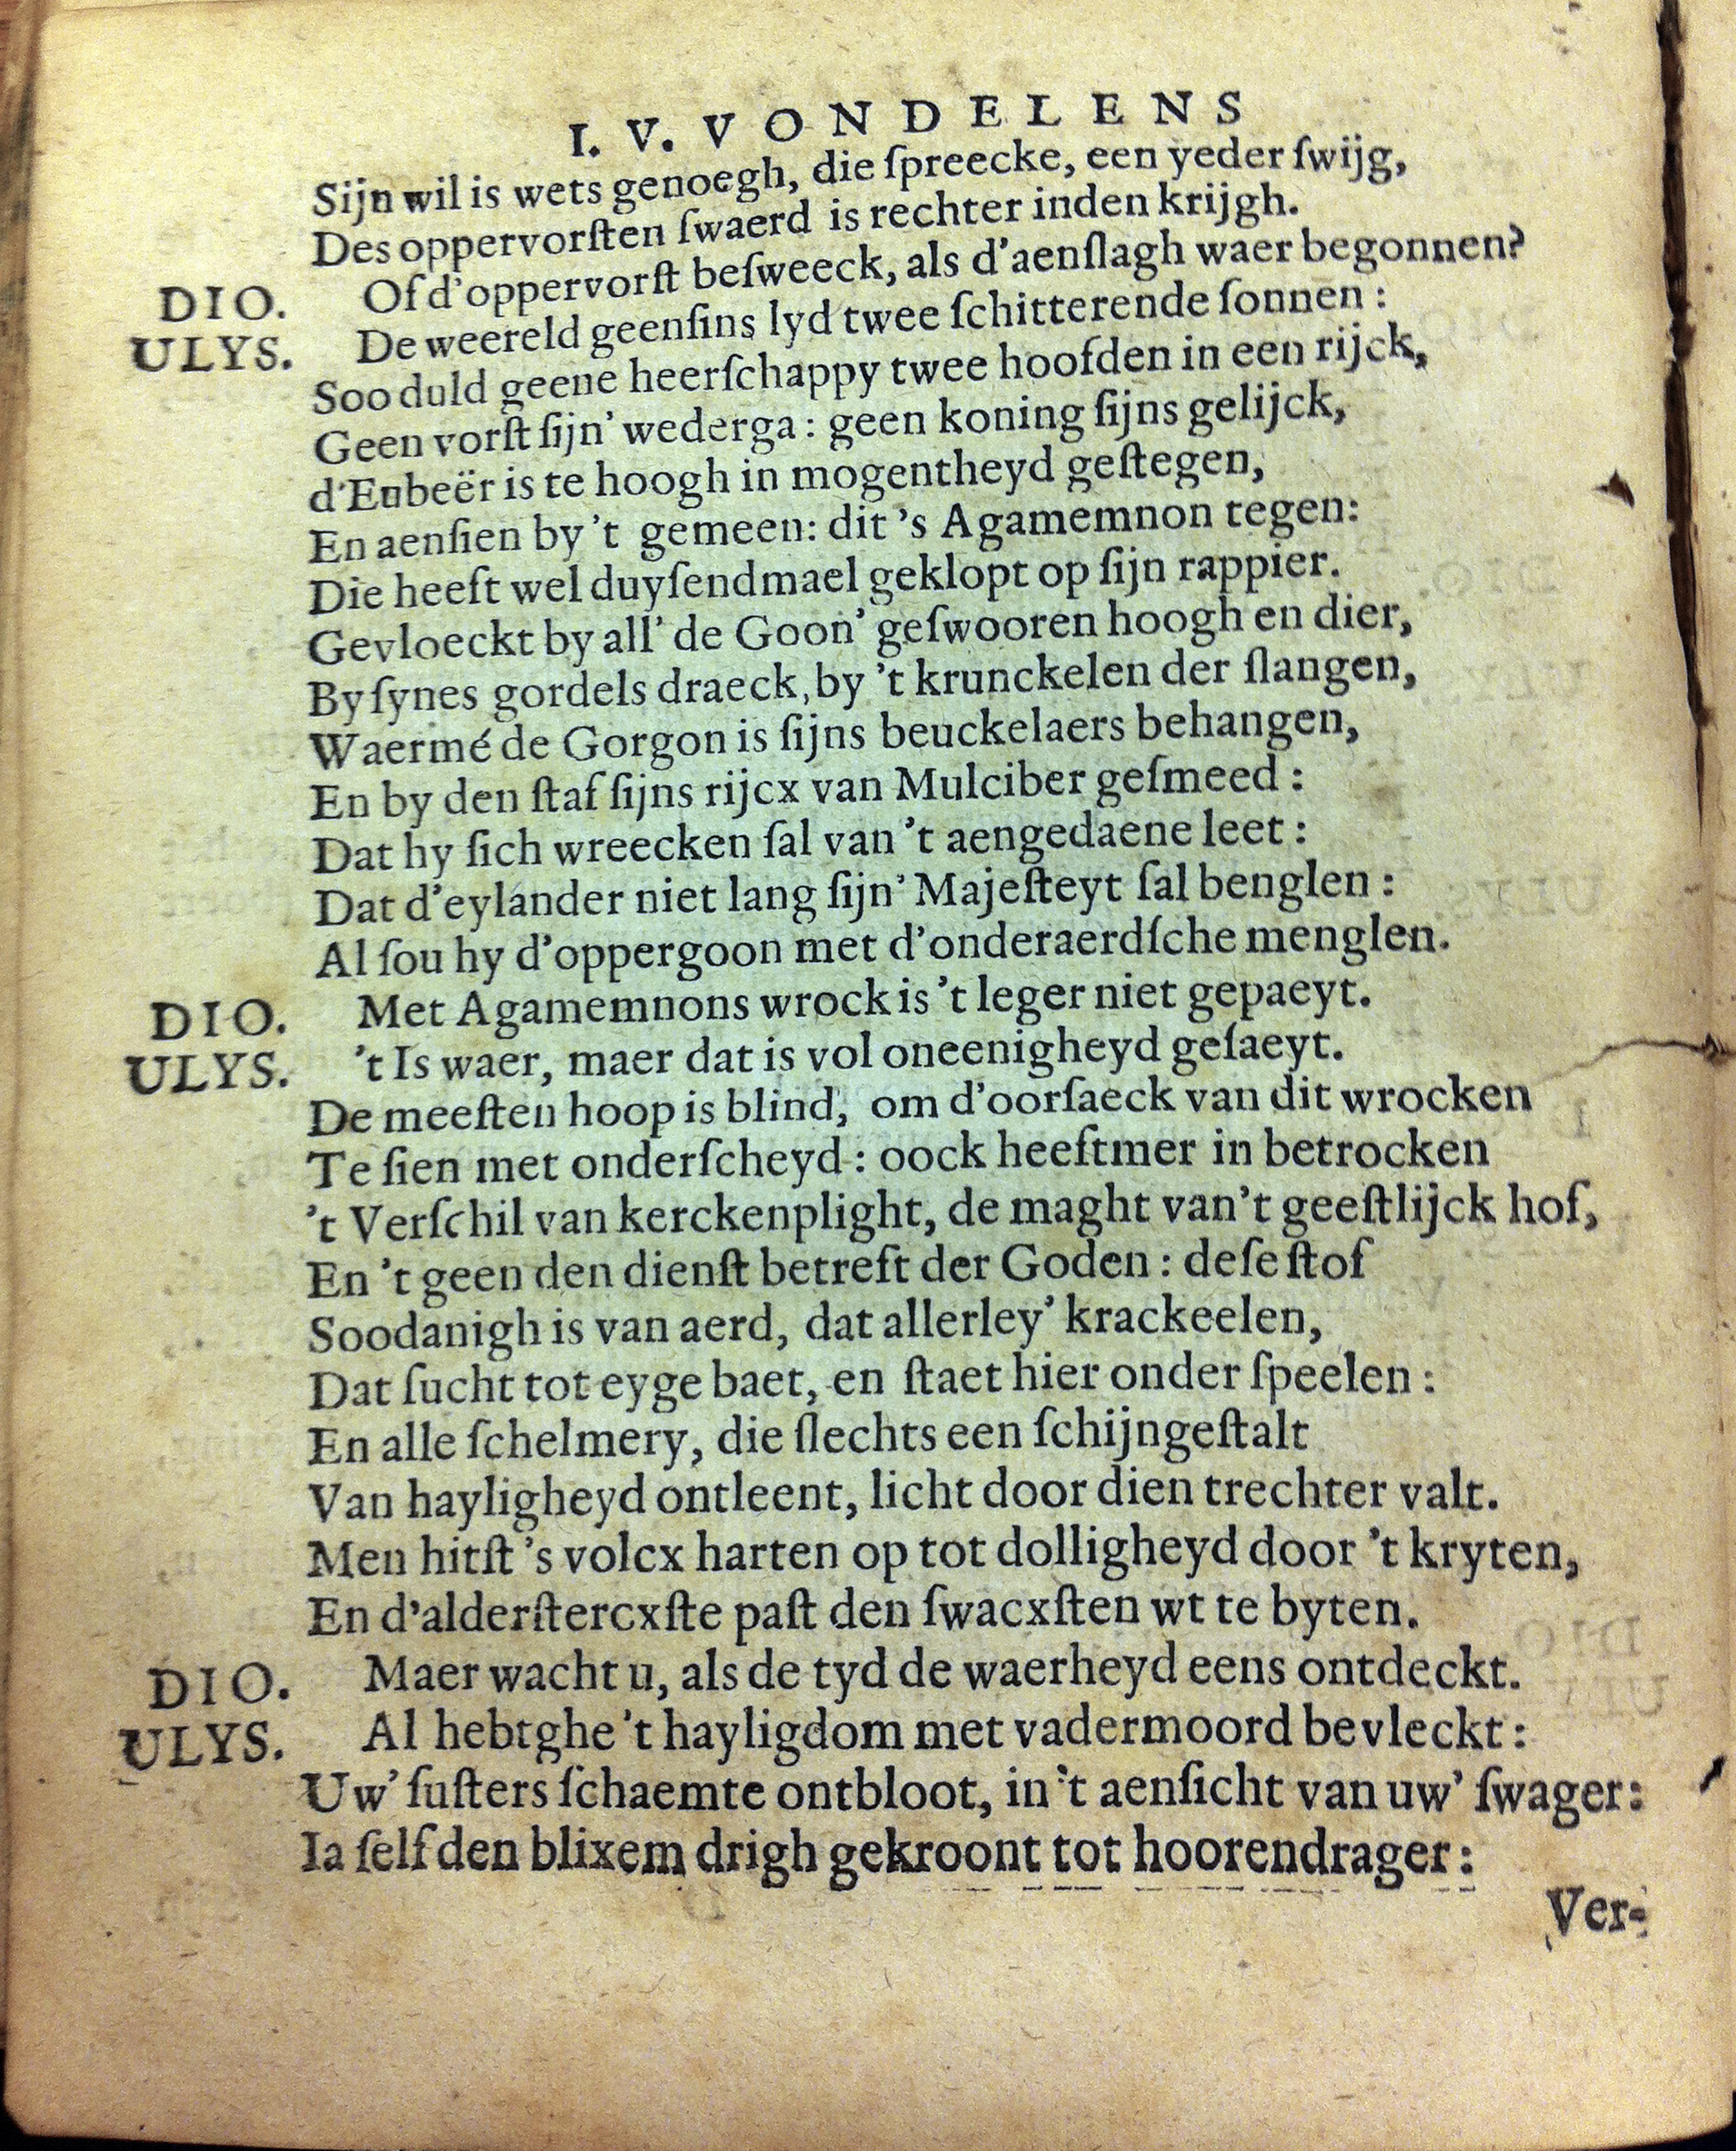 I. V. VONDELENS
Sijn wil is wets genoegh, die ſpreecke, een yeder ſwijg,
Des oppervorſten ſwaerd is rechter inden krijgh.
DIO. Of d'oppervorſt beſweeck, als d'aenſlagh waer begonnen?
ULYS. De weereld geenſins lyd twee ſchitterende ſonnen:
Soo duld geene heerſchappy twee hoofden in een rijck,
Geen vorſt ſijn' wederga: geen koning ſijns gelijck,
d'Eubeër is te hoogh in mogentheyd geſtegen,
En aenſien by 't gemeen: dit 's Agamemnon tegen:
Die heeft wel duyſendmael geklopt op ſijn rappier.
Gevloeckt by all' de Goon' geſwooren hoogh en dier,
By ſynes gordels draeck, by 't krunckelen der ſlangen,
Waermé de Gorgon is ſijns beuckelaers behangen,
En by den ſtaf ſijns rijcx van Mulciber geſmeed:
Dat hy ſich wreecken ſal van 't aengedaene leet:
Dat d'eylander niet lang ſijn' Majeſteyt ſal benglen:
Al ſou hy d'oppergoon met d'onderaerdſche menglen.
DIO. Met Agamemnons wrock is 't leger niet gepaeyt.
ULYS. 't Is waer, maer dat is vol oneenigheyd geſaeyt.
De meeſten hoop is blind, om d'oorſaeck van dit wrocken
Te ſien met onderſcheyd: oock heeftmer in betrocken
't Verſchil van kerckenplight, de maght van 't geeſtlijck hof,
En 't geen den dienſt betreft der Goden: deſe ſtof
Soodanigh is van aerd, dat allerley' krackeelen,
Dat ſucht tot eyge baet, en ſtaet hier onder ſpeelen:
En alle ſchelmery, die ſlechts een ſchijngeſtalt
Van hayligheyd ontleent, licht door dien trechter valt.
Men hitſt 's volcx harten op tot dolligheyd door 't kryten,
En d'alderſtercxſte paſt den ſwacxſten wt te byten.
DIO. Maer wacht u, als de tyd de waerheyd eens ontdeckt.
ULYS. Al hebtghe 't hayligdom met vadermoord bevleckt:
Uw' ſuſters ſchaemte ontbloot, in 't aenſicht van uw' ſwager:
Ia ſelf den blixem drigh gekroont tot hoorendrager:
Ver-